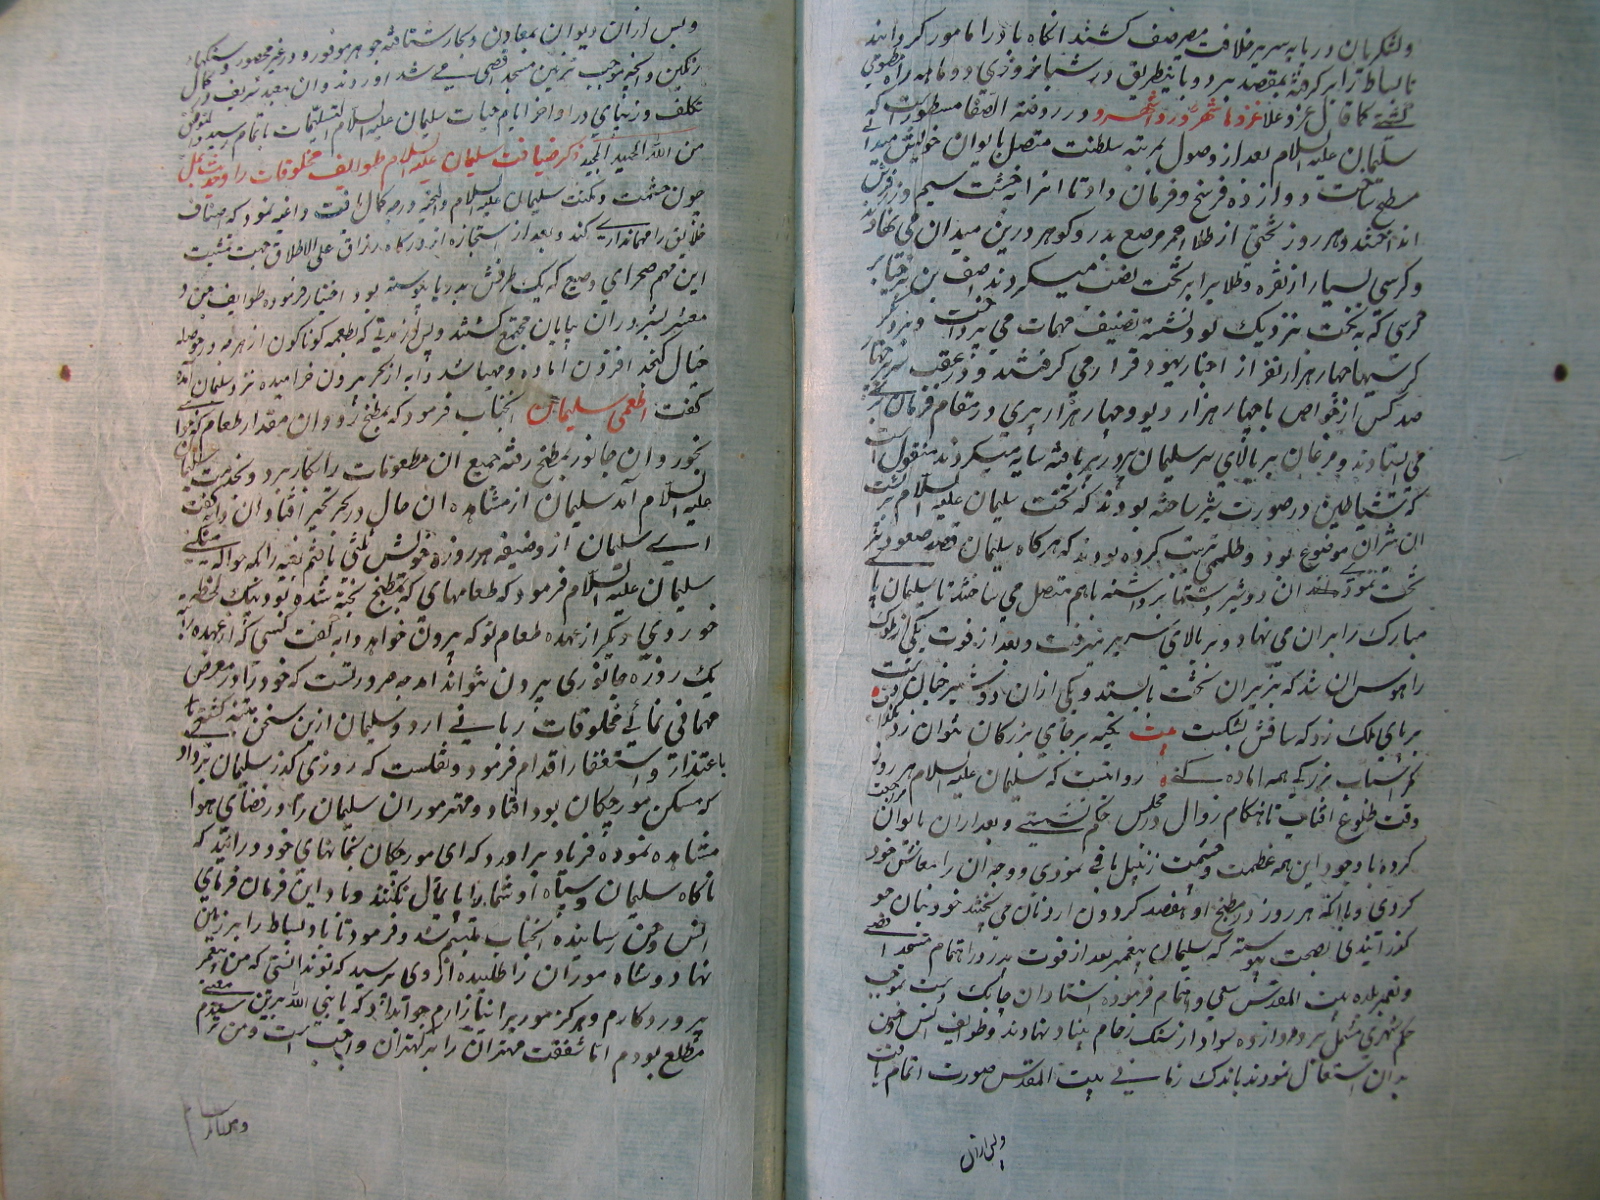 ولشکریان در پایه سریر خلافت مصیر صف کشند انکاه باد را مامور کردانند
تا بساط را بر کرفته بمقصد برد و باینطریق در شبانروزی دو ماهه راه
کشتی کما قال عز و علا غدوها شهر ورواحها شهر و در روضة الصفا مسطور است که
سلیمان علیه السلام بعد از وصول بمرتبه سلطنت متصل بایوان خویش میدانی
مسطح ساخت دوازده فرسخ و فرمان داد تا انرا بخشت سیم و زر فرش
انداختند و هر روز تختی از طلا احمر مرصع بدر و کوهر درین میدان می نهادند
و کرسی بسیار از نقره و طلا برابر تخت نصب میکردند اصف بن برخیا بر
کرسی که به تخت نزدیک بود نشسته مهمات می پرداخت و بر دیکر
کرسیها چهار هزار نفر از احبار یهود قرار می کرفتند و در عقب
صد کس از خواص با چهار هزار دیو و چهار هزار پری در مقام فرمان بری
می ایستادند و مرغان بر بالای سر سلیمان پر در پر بافته سایه میکردند منقول است
که شیاطین در صورت شیر ساخته بودند که تخت سلیمان علیه السلام بر پشت
ان شیران موضوع بود و طلسمی ترتیب کرده بودند که هرکاه سلیمان قصد صعود بر
تخت نمودی ان دو شیر دستها برداشته باهم متصل می ساختند تا سلیمان پای
مبارک را بران می نهاد و بر بالای سریر میرفت و بعد از فوت یکی از ملوک
را هوس ان شد که بر ان تخت بالا رود و یکی از ان دو شیر چنان دست
بر پای ملک زد که ساقش بشکست بیت تکیه بر جای بزرکان نتوان زد بکزاف
مکر اسباب بزرکی همه اماده کنی روایتست که سلیمان علیه السلام هر روز
وقت طلوع افتاب تا هنکام زوال در مجلس حکم نشستی و بعد ازان بایوان مراجعت
کرده با وجود این همه عظمت و حشمت زنبیل بافی نمودی و وجه ان را معاش خود
کردی و با انکه هر روز در مطبخ او هفتصد کردون ارد نان می پختند خود بنان جو
کذرانیدی بصحت پیوسته که سلیمان پیغمبر بعد از فوت پدر در اتمام مسجد اقصی
و تعمیر بلده بیت المقدس سعی و اهتمام فرموده استادان چابک دست بموجب
حکم شهری مشتمل بر دوازده سواد از سنک رخام بنیاد نهادند و طوایف انس و جن
بدان اشتغال نمودند باندک زمانی بیت المقدس صورت اتمام یافت
و پس ازان
و پس ازان دیوان بمعادن و بحار شتافته جواهر موفور و درر غیر محصور و سنکهای
رنکین و انچه موجب تزیین مسجد اقصی می شد اوردند و ان معبد شریف در کمال
تکلف و زیبای در اواخر ایام حیات سلیمان علیه السلام و التسلیمات باتمام رسید
من الله الحمید المجید ذکر ضیافت سلیمان علیه السلام طوایف مخلوقات را
چون حشمت و مکنت سلیمان علیه السلام و التحیه درجه کمال یافت داعیه نمود که اصناف
خلایق را مهمانداری کند و بعد از استجازه از درکاه رزاق علی الاطلاق جهت تمشیت
این مهم صحرای وسیع که یک طرفش بدریا پیوسته بود اختیار فرموده طوایف جن و
معشر بشر دران بیابان مجتمع کشتند و پس از مدتی که اطعمه کوناکون از هرچه در حوصله
خیال کنجد افزون اماده و مهیا شد دابه از بحر بیرون خرامیده نزد سلیمان امده
کفت اطعمنی سلیمان انجناب فرمود که بمطبخ رو وان مقدار طعام که
بخور وان جانور بمطبخ رفته جمیع ان مطعومات را بکار برد و بخدمت سلیمان
علیه السلام آمد سلیمان از مشاهده ان حال در بحر تحیر افتاد ان دابه کفت
ای سلیمان از وظیفه هر روزه خویش ثلثی یافتم بقیه را بکه حواله میکنی
سلیمان علیه السلام فرمود که طعامهای که بمطبخ پخته شده بود بیک لحظه
خوردی دیکر از عهده طعام تو که بیرون خواهد امد دابه کفت کسی که از عهده
یک روزه جانوری بیرون نتواند امد چه ضرورتست که خود را در معرض
مهمانی تمامی مخلوقات ربانی ارد و سلیمان ازین سخن متنبه کشته
باعتذار و استغفار اقدام فرمود و نقلست که روزی کذر سلیمان بر وادی
که مسکن مورچکان بود افتاد و مهتر موران سلیمان را در فضای هوا
مشاهده نموده فریاد براورد که ای مورچکان بخانهای خود درائید که
ناکاه سلیمان و سپاه او شما را پایمال نکنند و باد این فرمان فرمای
انس و جن رسانیده انجناب متبسم شد و فرمود تا باد بساط را بر زمین
نهاد و شاه موران را طلبیده از وی پرسید که تو ندانستی که من پیغمبر
پروردکارم و هرکز مور را نیازارم جواب داد که یا نبی الله برین معنی
مطلع بودم اما شفقت مهتران را بر کهتران واجبست و من